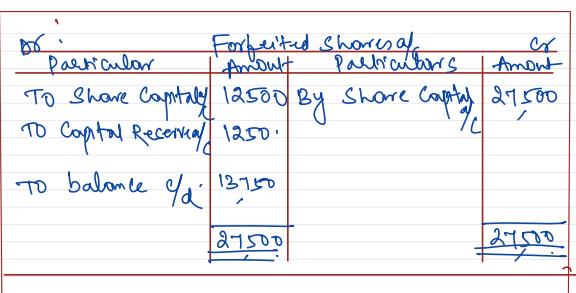 Dr Forfeited Shares a/c Cr
Particular Amount Particulars Amount
To Share Capital a/c 12500 By Share Capital a/c 27500
To Capital Reserve a/c 1250
To balance c/d 13750
27500 27500